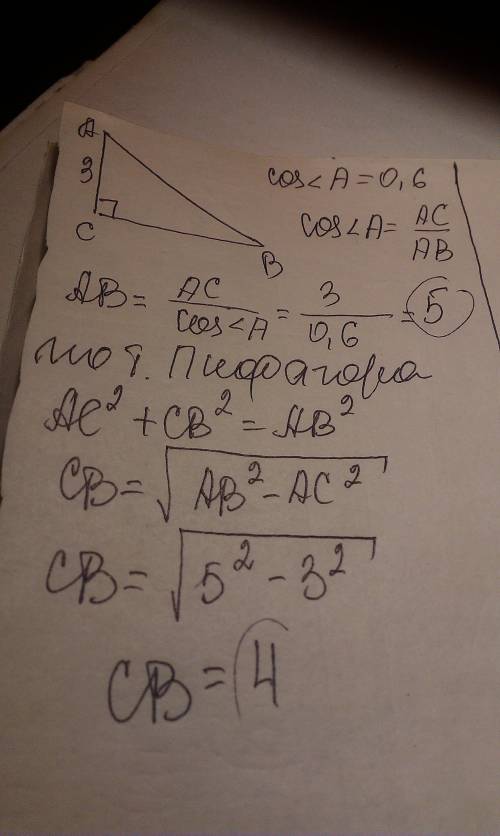 A
3
C
B
cos<A=0,6
cos<A= AC/AB
AB= AC/cos<A = 3/0,6 = 5
по т. Пифагора
AC²+CB²=AB²
CB=√AB²-AC²
CB=√5²-3²
CB=4